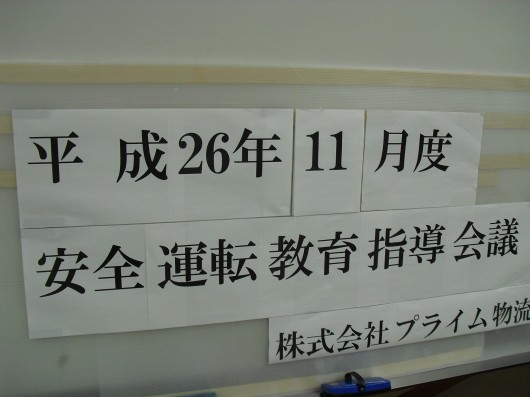 平成26年11月度
安全運転教育指導会議
株式会社プライム物流